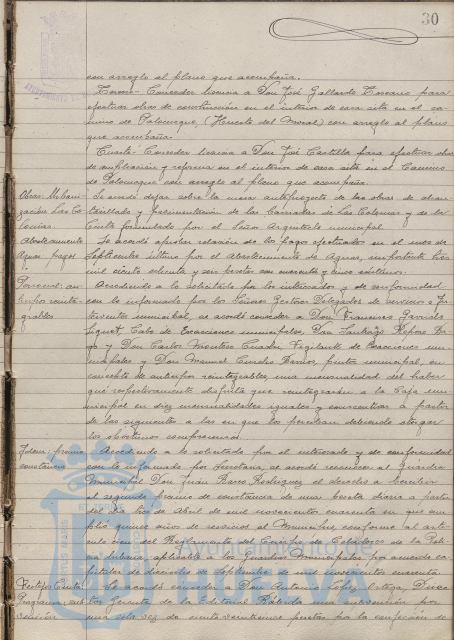 30
con arreglo al plano que acompaña.
Tercero - Conceder licencia a Don José Gallardo Toscano para
efectuar obras de construcción en el interior de casa sita en el ca-
mino de Palomeque, (Huerto del Moral) con arreglo al plano
que acompaña.
Cuarto - Conceder licencia a Don José Castilla para efectuar obras
de ampliación y reforma en el interior de casa sita en el Camino
de Palomeque con arreglo al plano que acompaña.
Obras. Urbani-
zación Las Co-
lonias
Se acordó dejar sobre la mesa anteproyecto de las obras de alcan-
tarillado y pavimentación de las Barriadas de Las Colonias y de la
formulado por el Señor Arquitecto municipal.
Abastecimiento
Aguas pagos
Se acordó aprobar relación de los pagos efectuados en el mes de
Septiembre último por el Abastecimiento de Aguas, importante tres
mil ciento setenta y seis pesetas con cuarenta y cinco céntimos.
Personal: an-
ticipos reinte-
grables
Accediendo a lo solicitado por los interesados y de conformidad
con lo informado por los Señores Gestores Delegados de servicios e In-
terventor municipal, se acordó conceder a Don Francisco Garrido
Cabo de Exacciones municipales, Don Santiago
y Don Carlos Montero Vigilante de Exacciones mu-
nicipales y Don Manuel Barrios, pintor municipal, en
concepto de anticipo reintegrable una mensualidad del haber
que respectivamente disfruta que reintegrarán a la Caja mu-
nicipal en diez mensualidades iguales y consecutivas a partir
de las siguientes a las en que los perciban debiendo otorgar
los oportunos compromisos.
Idem: premio
constancia
Accediendo a lo solicitado por el interesado y de conformidad
con lo informado por Secretaría, se acordó reconocer al Guardia
Municipal Don Juan Rodríguez el derecho a percibir
el segundo premio de constancia de una peseta diaria a partir
del día de Abril de mil novecientos cuarenta en que cum-
plió quince años de servicios al Municipio, conforme al artí-
culo del Reglamento del Cuerpo de Celadores de la Poli-
cía Urbana aplicable a los Guardias Municipales por acuerdo ca-
pitular de dieciséis de Septiembre de mil novecientos cuarenta.
Festejos
Programas
Se acordó conceder a Don Antonio López Ortega, Direc-
tor Gerente de la Editorial Rábida una subvención por
una sola vez de pesetas por la confección de